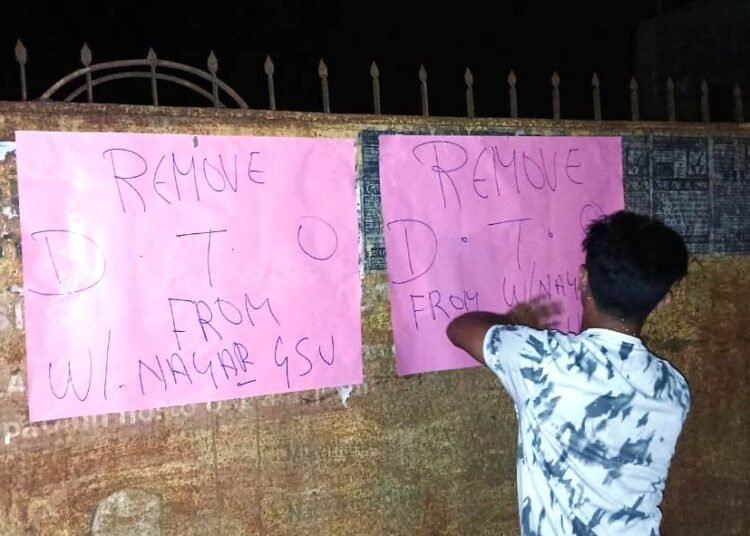 REMOVE
D. T. O
FROM
W/. NAGAR GSU
REMOVE
D. T. O
FROM W/NAG